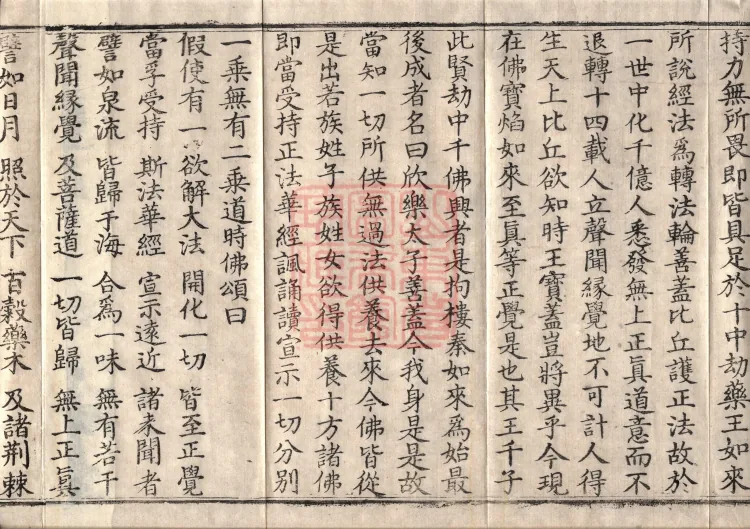 持力無所畏即皆具足於十中劫藥王如來
所說經法為轉法輪善蓋比丘護正法故於
一世中化千億人悉發無上正真道意而不
退轉十四載人立聲聞緣覺地不可計人得
生天上比丘欲知時王寶蓋豈將異乎今現
在佛寶焰如來至真等正覺是也其王千子
此賢劫中千佛興者是拘樓秦如來為始最
後成者名曰欣樂太子善蓋今我身是是故
當知一切所供無過法供養去來今佛皆從
是出若族姓子族姓女欲得供養十方諸佛
即當受持正法華經諷誦讀宣示一切分別
一乘無有二乘道時佛頌曰
假使有一欲解大法 開化一切 皆至正覺
當孚受持 斯法華經 宣示遠近 諸來聞者
譬如泉流 皆歸于海 合為一味 無有若干
聲聞緣覺 及菩薩道 一切皆歸 無上正真
譬如日月 照於天下 百穀藥木 及諸荊棘